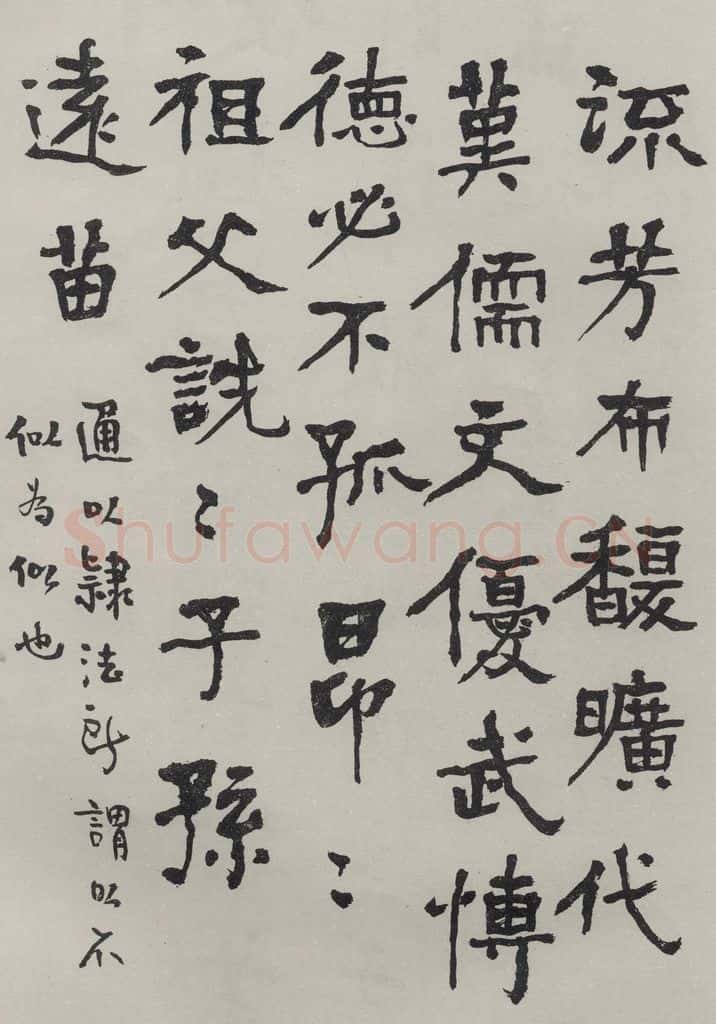 流芳布馥曠代
冀儒文優武愽
德必不孤昂〻
祖父詵〻子孫
遠苗
通以隸法所謂以不
似為似也
Shufawang.CN